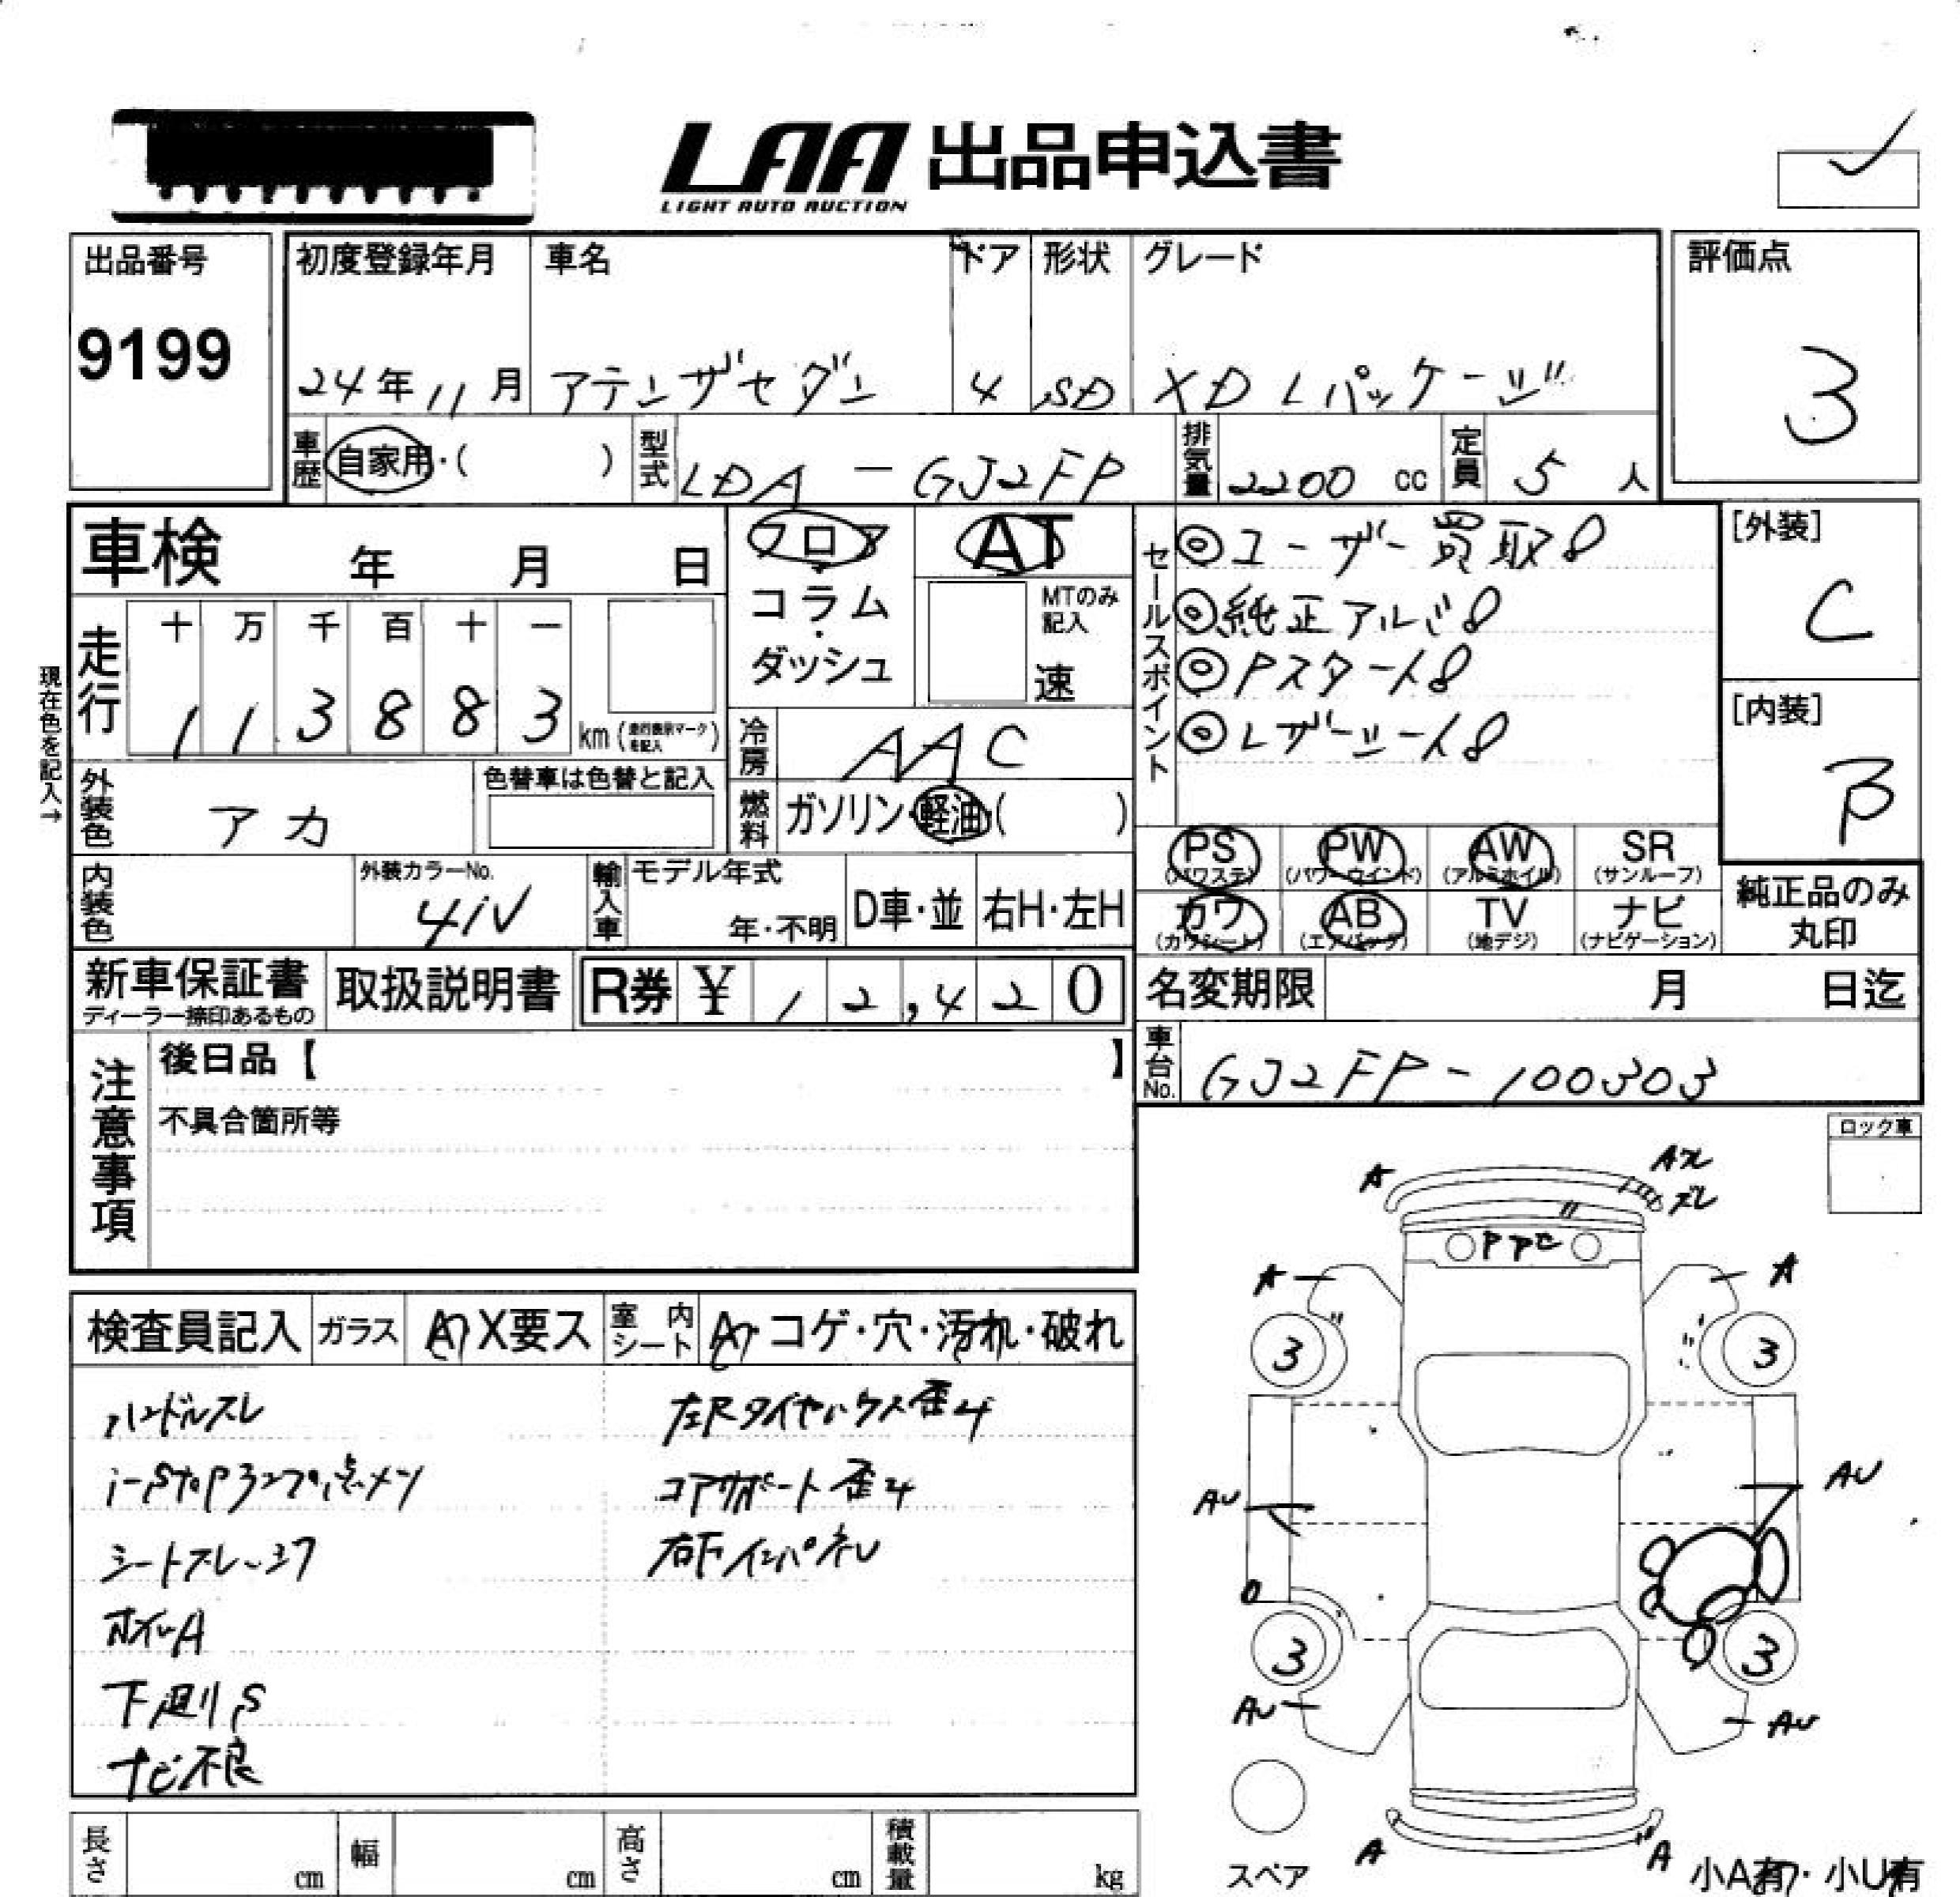 LAA 出品申込書
LIGHT AUTO AUCTION
出品番号
9199
初度登録年月
24年11月
車名
アテンザセダン
ドア
4
形状
SD
グレード
XD Lパッケージ
評価点
3
車歴
自家用・( )
型式
LDA-GJ2FP
排気量
2200 cc
定員
5 人
車検 年 月 日
フロア
コラム
・
ダッシュ
AT
MTのみ
記入
速
セールスポイント
◎ユーザー買取!
◎純正アルミ!
◎Pスタート!
◎レザーシート!
[外装]
C
[内装]
B
現在色を記入→
走行
十 万 千 百 十 一
1 1 3 8 8 3 km
冷房
AAC
外装色
アカ
色替車は色替と記入
燃料
ガソリン・軽油( )
PS
(パワステ)
PW
(パワーウインド)
AW
(アルミホイル)
SR
(サンルーフ)
カワ
(カワシート)
AB
(エアバック)
TV
(地デジ)
ナビ
(ナビゲーション)
純正品のみ
丸印
内装色
外装カラーNo.
41V
輸入車
モデル年式
年・不明
D車・並
右H・左H
新車保証書
ディーラー捺印あるもの
取扱説明書
R券 ¥ 12,420
名変期限 月 日迄
車台No.
GJ2FP-100303
注意事項
後日品【 】
不具合箇所等
ロック車
A
Aス
ズレ
A
A
3
3
AU
AU
3
3
AU
AU
A
A
スペア
小A有・小U有
検査員記入
ガラス
A・X要ス
室内シート
A・コゲ・穴・汚れ・破れ
ハンドルスレ
シートスレ
ホイルA
下廻りS
ナビ不良
左Fタイヤハウス歪み
コアサポート歪み
長さ cm
幅 cm
高さ cm
積載量 kg